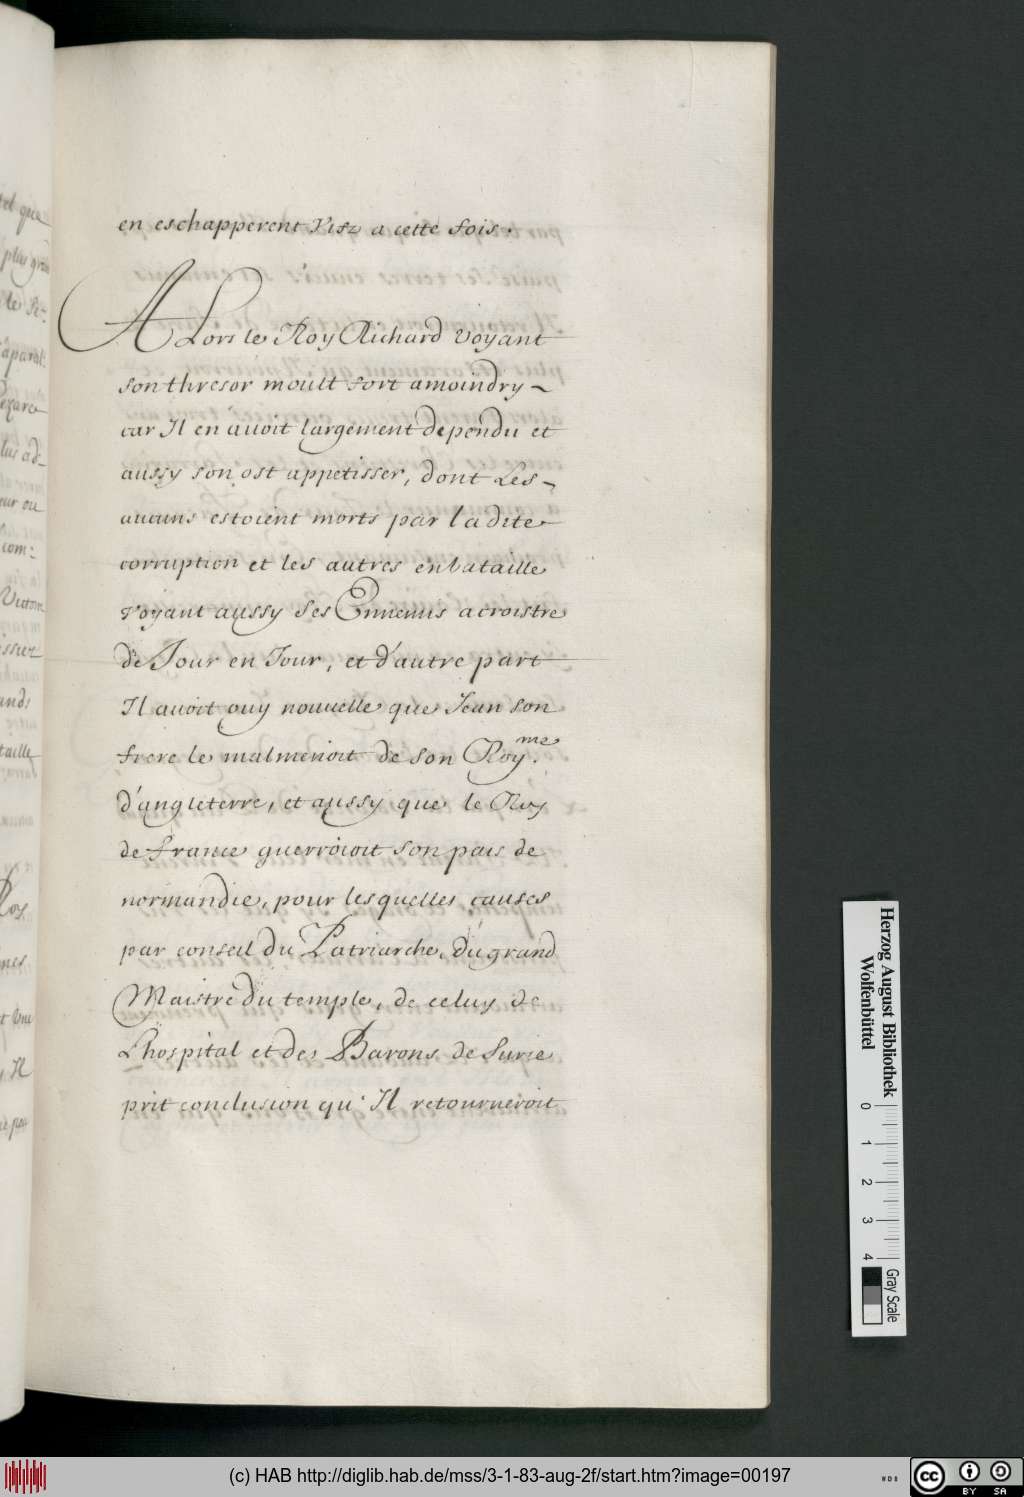 en eschapperent visz a cette fois.
ALors le Roy Richard voyant
son thresor moult fort amoindry
car Il en auoit largement dependu et
aussy son ost appetisser, dont Les
aucuns estoient morts par la dite
corruption et les autres en bataille
voyant aussy ses Ennemis acroistre
de Jour en Jour, et d'autre part
Il auoit ouy nouuelle que Jean son
frere le malmenoit de son Roy.me
d'angleterre, et aussy que le Roy
de france guerroioit son pais de
normandie, pour lesquelles causes
par conseil du Patriarche, du grand
Maistre du temple, de celuy de
Lhospital et des Barons de Surie
prit conclusion qu'Il retourneroit
tel que
plus gran
le
d'aparal
ad-
eur ou
com:
Victoire
and:
taille
Roy
Il
Herzog August Bibliothek
Wolfenbüttel
0 1 2 3 4
Gray Scale
(c) HAB http://diglib.hab.de/mss/3-1-83-aug-2f/start.htm?image=00197
WDB
cc BY SA